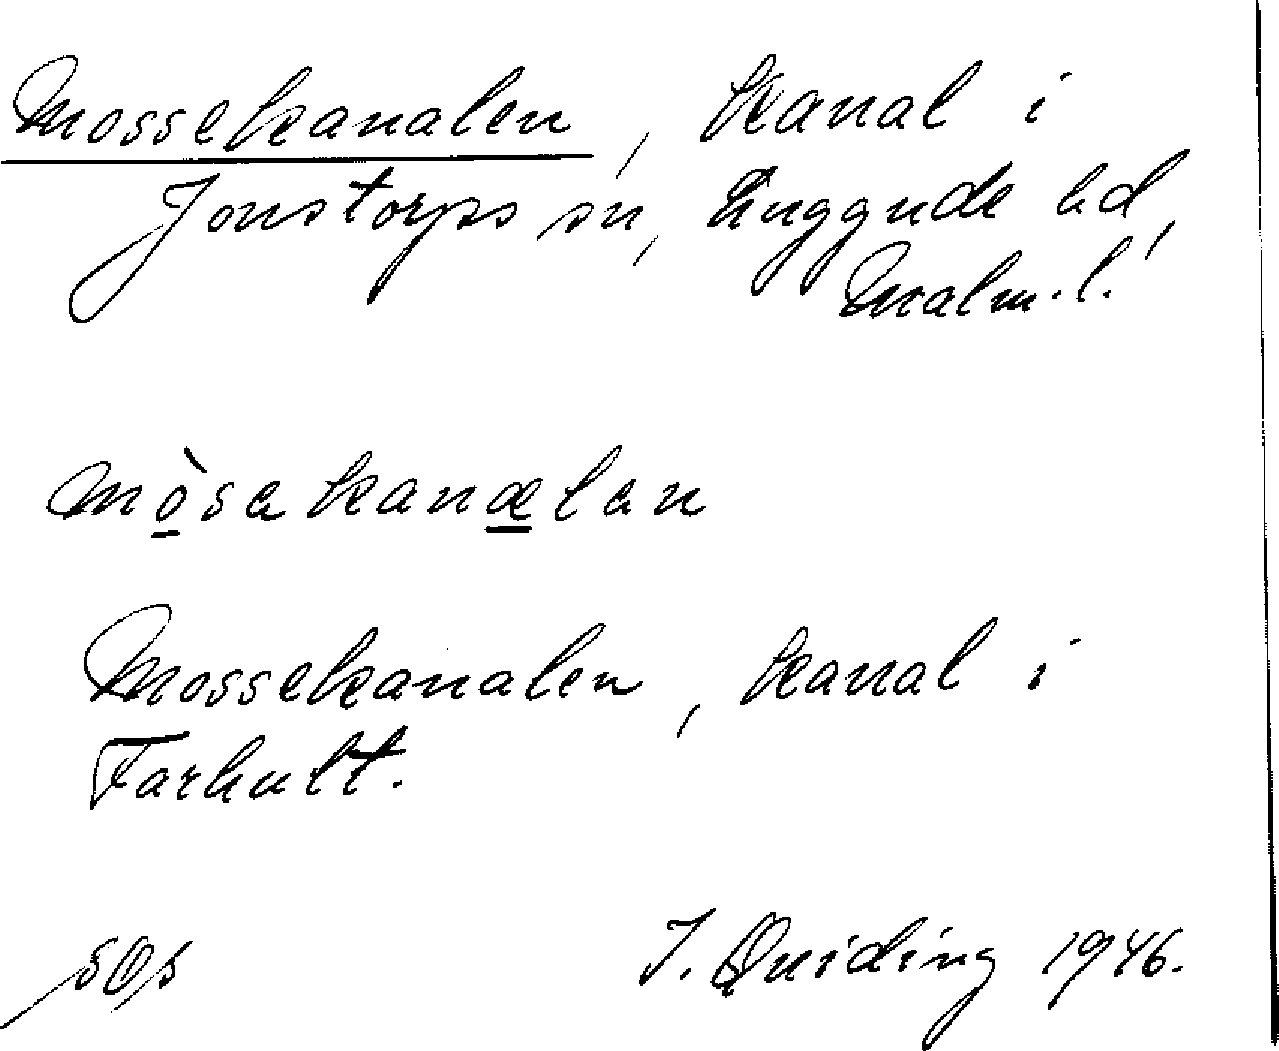 Mossekanalen, kanal i
Jonstorps sn, Luggude hd,
Malm. l.
mòsekanalen
Mossekanalen, kanal i
Farhult.
SOS J. Quiding 1946.